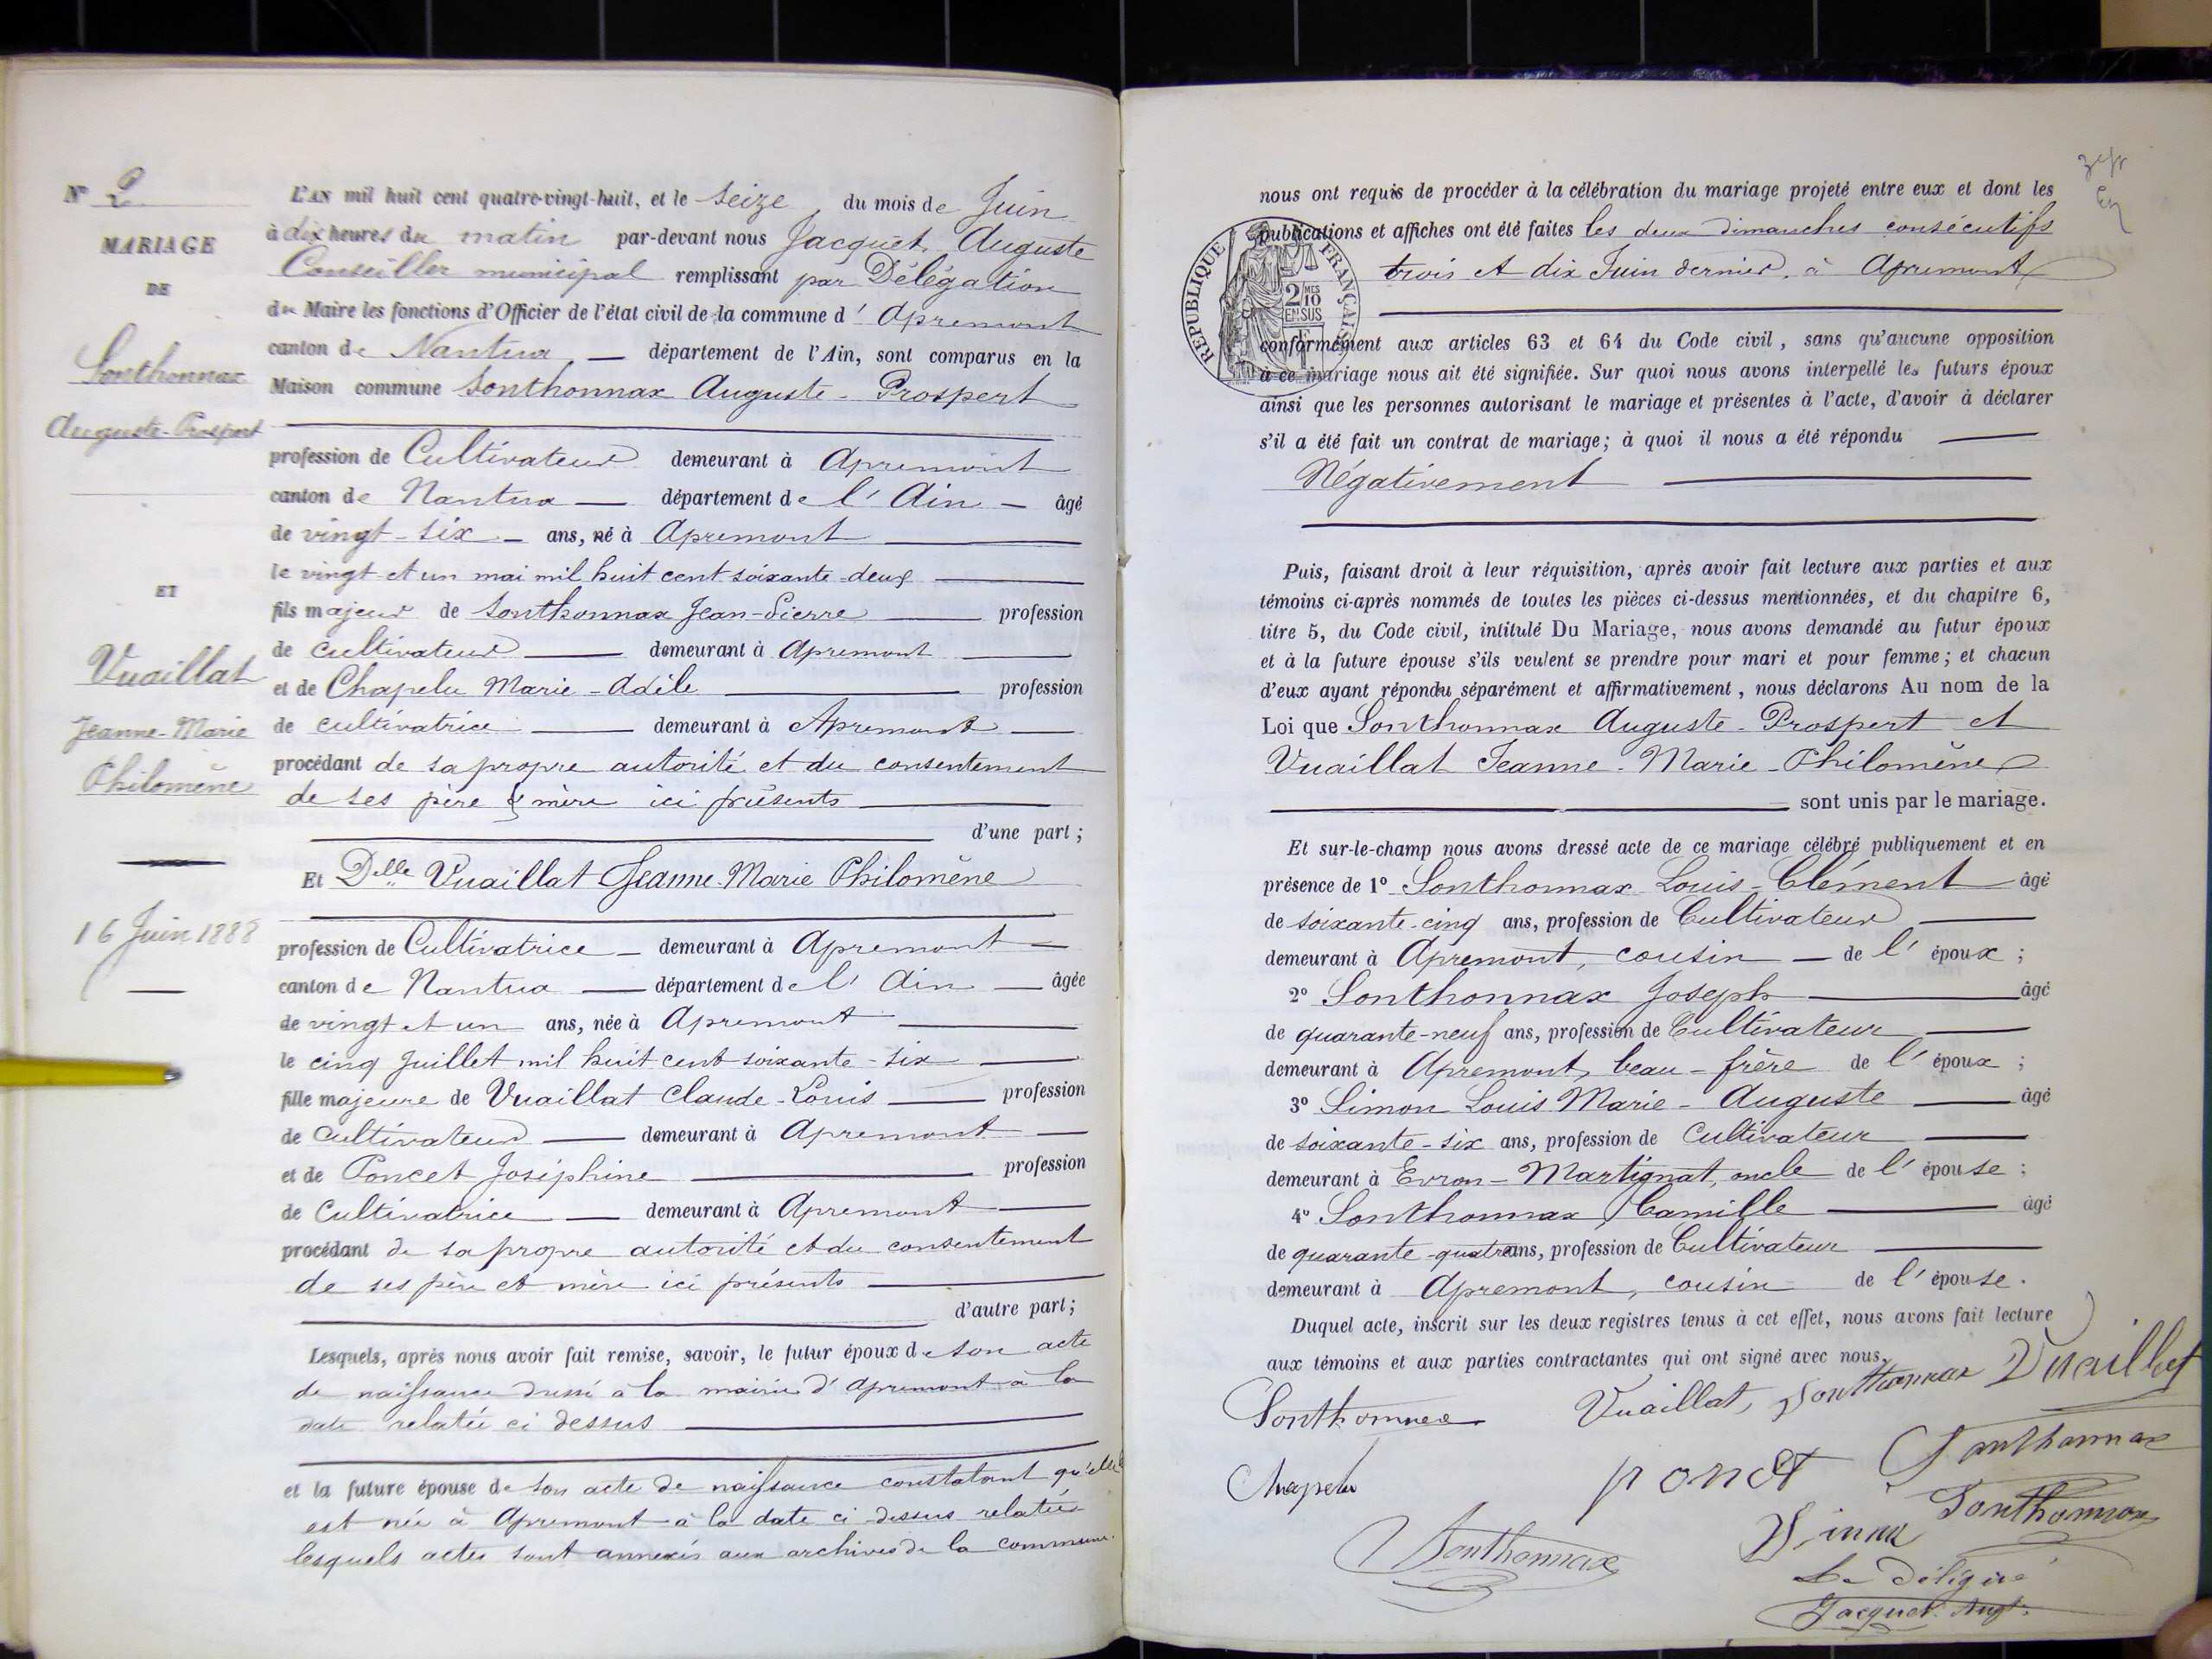 N° 2
MARIAGE
DE
Sonthonnax
Auguste-Prospert
ET
Vuaillat
Jeanne-Marie
Philomène
16 Juin 1888
L'AN mil huit cent quatre-vingt-huit, et le seize du mois de Juin
à dix heures du matin par-devant nous Jacquet Auguste
Conseiller municipal remplissant par Délégation
du Maire les fonctions d'Officier de l'état civil de la commune d' Apremont
canton de Nantua — département de l'Ain, sont comparus en la
Maison commune Sonthonnax Auguste - Prospert
profession de Cultivateur demeurant à Apremont
canton de Nantua — département de l'Ain — âgé
de vingt-six — ans, né à Apremont
le vingt-et un mai mil huit cent soixante-deux
fils majeur de Sonthonnax Jean-Pierre profession
de cultivateur demeurant à Apremont
et de Chapelu Marie-Adèle profession
de cultivatrice demeurant à Apremont
procédant de sa propre autorité et du consentement
de ses père & mère ici présents
d'une part ;
Et Delle Vuaillat Jeanne Marie Philomène
profession de Cultivatrice — demeurant à Apremont —
canton de Nantua — département de l'Ain — âgée
de vingt et un ans, née à Apremont
le cinq Juillet mil huit cent soixante-six
fille majeure de Vuaillat Claude-Louis profession
de cultivateur demeurant à Apremont
et de Poncet Joséphine profession
de Cultivatrice demeurant à Apremont
procédant de sa propre autorité et du consentement
de ses père et mère ici présents
d'autre part ;
Lesquels, après nous avoir fait remise, savoir, le futur époux de son acte
de naissance dressé à la mairie d'Apremont à la
date relatée ci dessus
et la future épouse de son acte de naissance constatant qu'elle
est née à Apremont à la date ci-dessus relatée
lesquels actes sont annexés aux archives de la commune.
nous ont requis de procéder à la célébration du mariage projeté entre eux et dont les
publications et affiches ont été faites les deux dimanches consécutifs
trois et dix Juin dernier, à Apremont
RÉPUBLIQUE FRANÇAISE
2 MES 10 EN SUS
conformément aux articles 63 et 64 du Code civil, sans qu'aucune opposition
à ce mariage nous ait été signifiée. Sur quoi nous avons interpellé les futurs époux
ainsi que les personnes autorisant le mariage et présentes à l'acte, d'avoir à déclarer
s'il a été fait un contrat de mariage; à quoi il nous a été répondu
Négativement
Puis, faisant droit à leur réquisition, après avoir fait lecture aux parties et aux
témoins ci-après nommés de toutes les pièces ci-dessus mentionnées, et du chapitre 6,
titre 5, du Code civil, intitulé Du Mariage, nous avons demandé au futur époux
et à la future épouse s'ils veulent se prendre pour mari et pour femme; et chacun
d'eux ayant répondu séparément et affirmativement, nous déclarons Au nom de la
Loi que Sonthonnax Auguste-Prospert et
Vuaillat Jeanne-Marie-Philomène
sont unis par le mariage.
Et sur-le-champ nous avons dressé acte de ce mariage célébré publiquement et en
présence de 1° Sonthonnax Louis-Clément âgé
de soixante-cinq ans, profession de Cultivateur
demeurant à Apremont, cousin — de l'époux ;
2° Sonthonnax Joseph âgé
de quarante-neuf ans, profession de Cultivateur
demeurant à Apremont, beau-frère de l'époux ;
3° Simon Louis Marie-Auguste âgé
de soixante-six ans, profession de Cultivateur
demeurant à Evron-Martignat, oncle de l'épouse ;
4° Sonthonnax Camille âgé
de quarante-quatre ans, profession de Cultivateur
demeurant à Apremont, cousin de l'épouse.
Duquel acte, inscrit sur les deux registres tenus à cet effet, nous avons fait lecture
aux témoins et aux parties contractantes qui ont signé avec nous.
Sonthonnax Vuaillat Sonthonnax Vuaillat
Chapelu poncet Sonthonnax
Sonthonnax Simon Sonthonnax
Le Délégué
Jacquet Augte